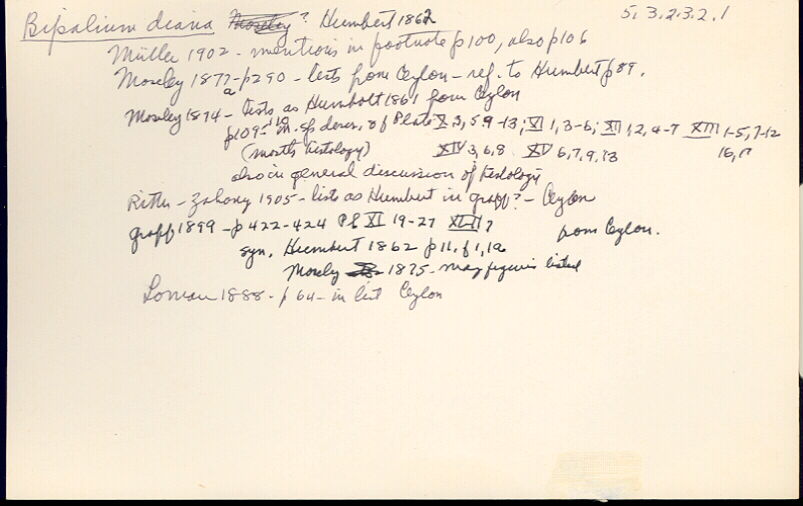 Bipalium diana Moseley? Humbert 1862 5.3.2.3.2.1
Müller 1902 - mentions in footnote p100, also p106
Moseley 1877a - p290 - lists from Ceylon - ref. to Humbert p89.
Moseley 1874 - lists as Humbolt 1861 from Ceylon
p109-110 n. sp descr. of Plate X 3,5,9-13; XI 1,3-6; XII 1,2,4-7 XIII 1-5,7-12
(mostly histology) XIV 3,6,8 XV 6,7,9,13 16,17
also in general discussion of histology
Ritter-Zahony 1905 - lists as Humbert in graff? - Ceylon
graff 1899 - p422-424 Pl XI 19-27 7 from Ceylon.
syn. Humbert 1862 p11. f1,1a
Mosely 1875 - many figures listed
Loman 1888 - p64 - in list Ceylon